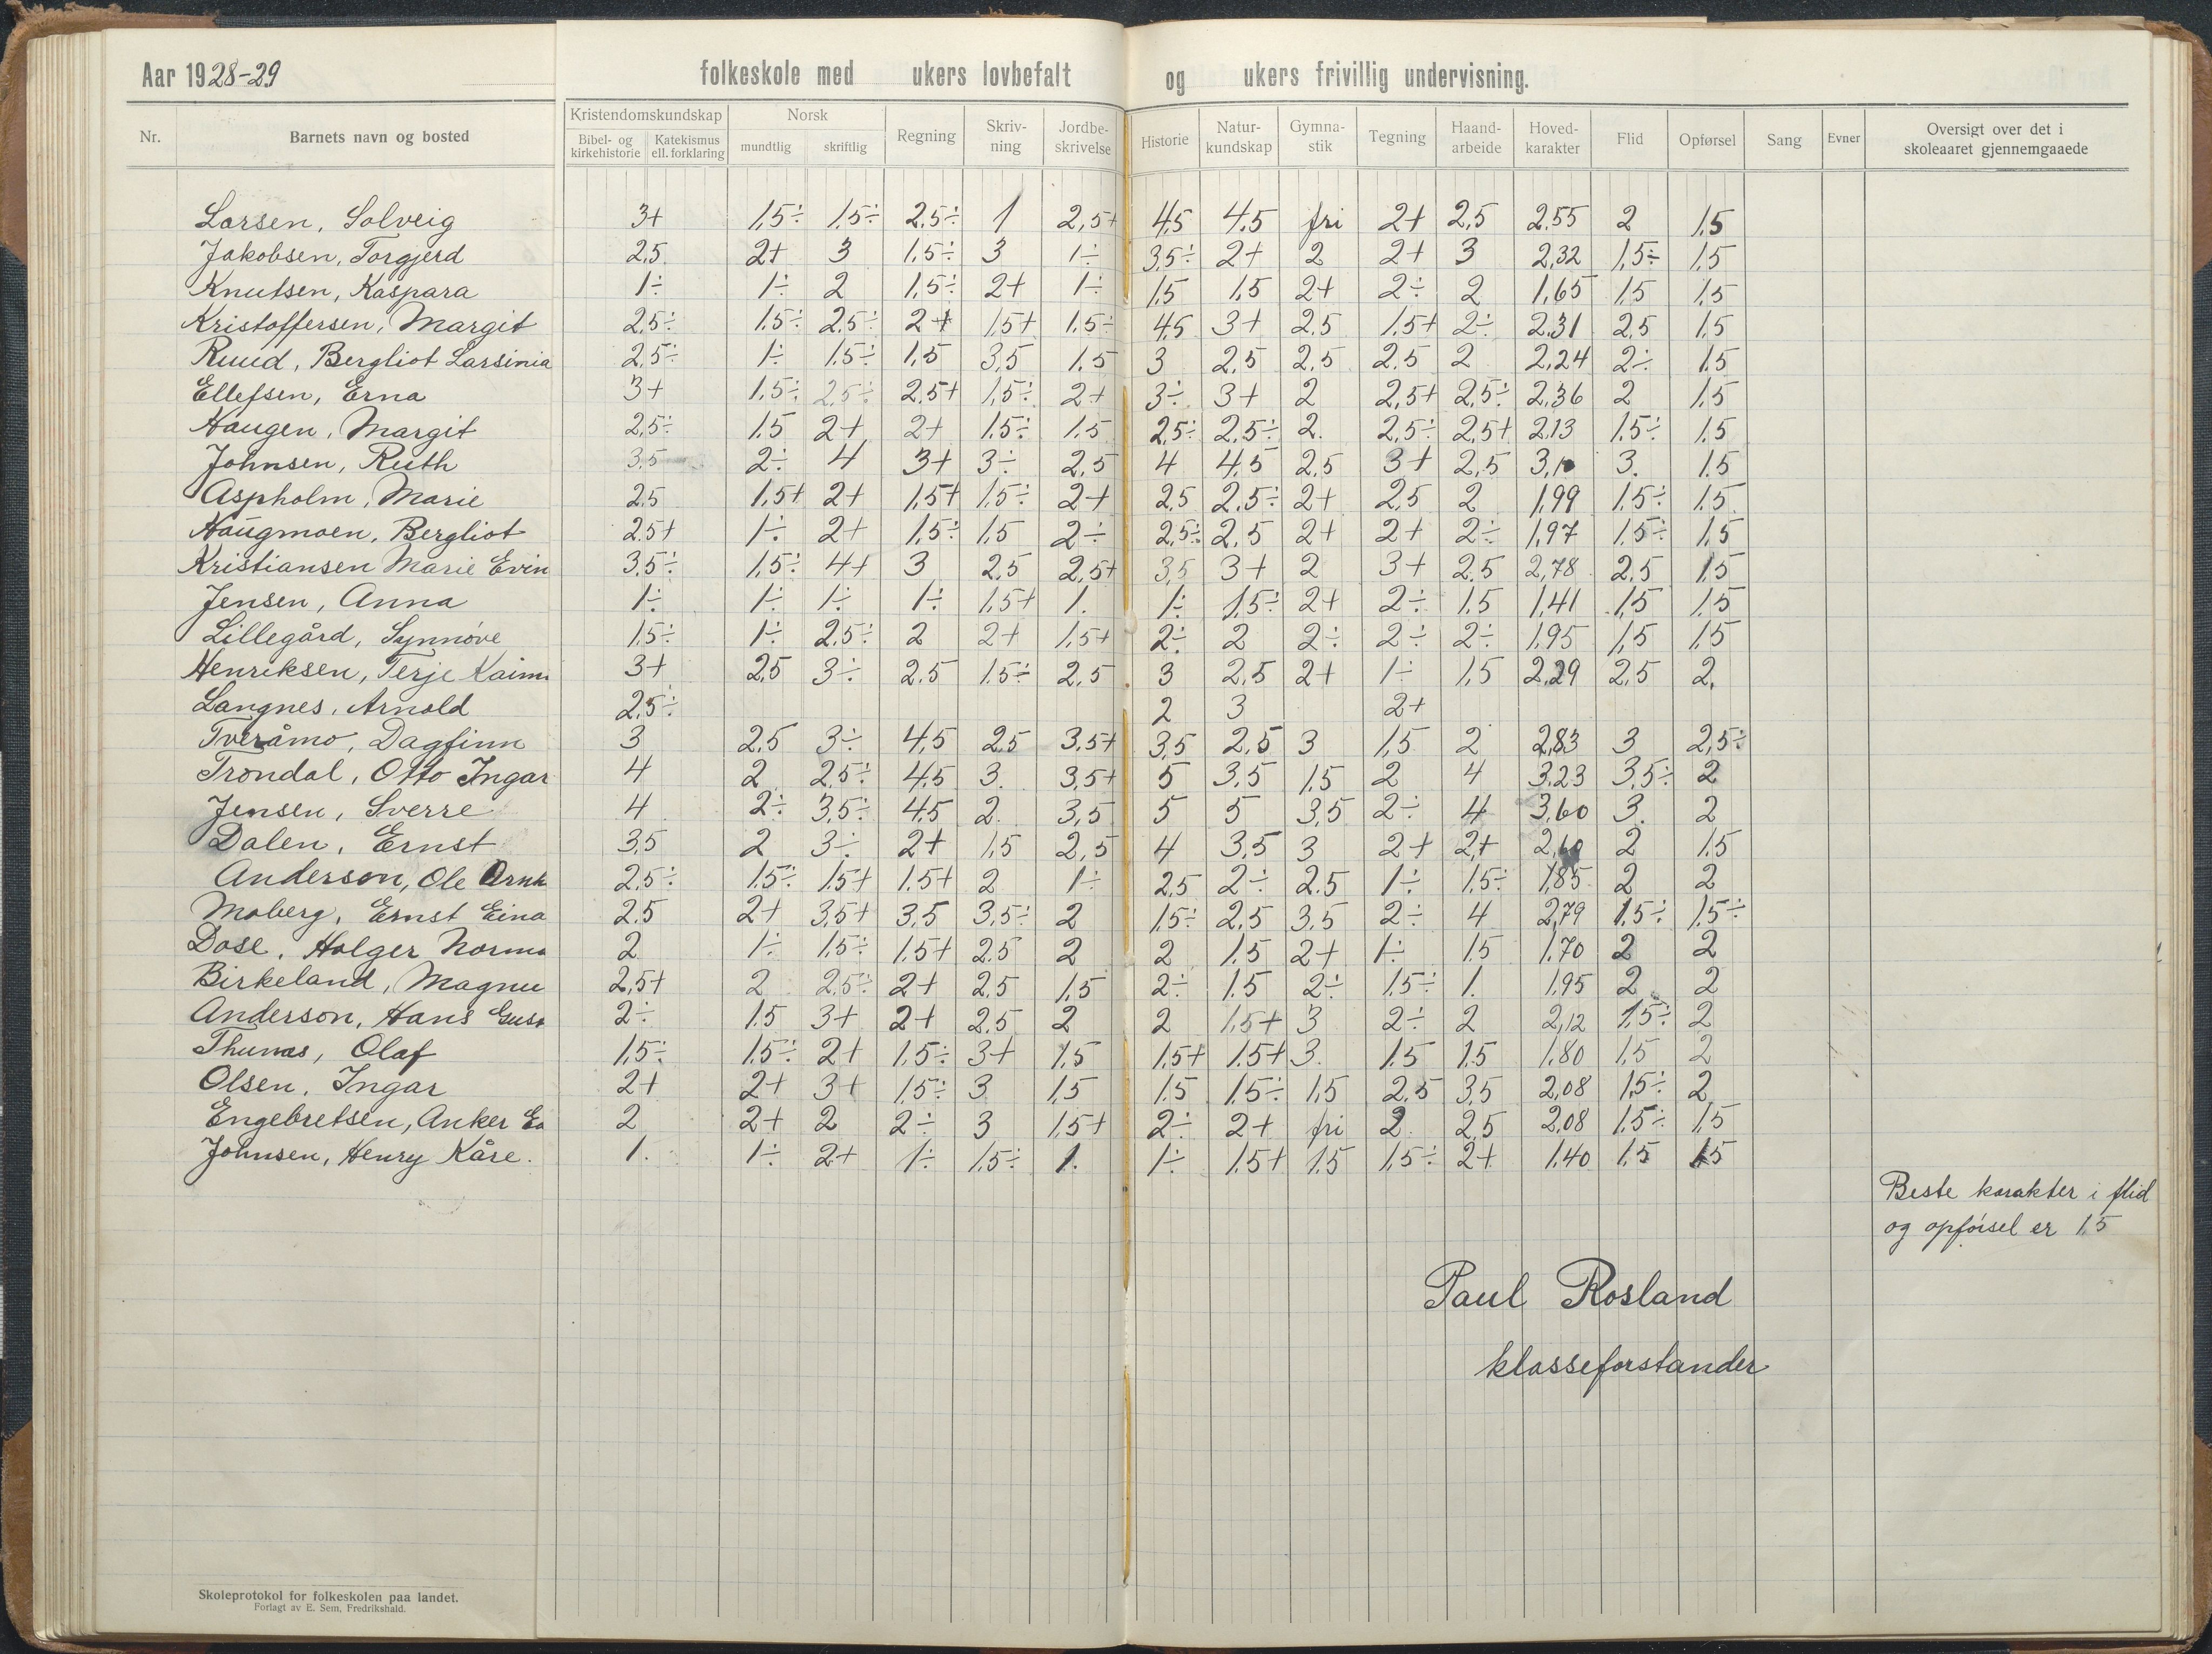 Aar 1928-29 folkeskole med ukers lovbefalt og ukers frivillig undervisning.
Nr. Barnets navn og bosted Kristendomskundskap Bibel- og kirkehistorie Katekismus ell. forklaring Norsk mundtlig skriftlig Regning Skriv-ning Jordbe-skrivelse Historie Natur-kundskap Gymna-stik Tegning Haand-arbeide Hoved-karakter Flid Opførsel Sang Evner Oversigt over det i skoleaaret gjennemgaaede
Larsen, Solveig 3+ 1,5÷ 1,5÷ 2,5÷ 1 2,5+ 4,5 4,5 fri 2+ 2,5 2,55 2 1,5
Jakobsen, Torgjerd 2,5 2+ 3 1,5÷ 3 1÷ 3,5÷ 2+ 2 2+ 3 2,32 1,5÷ 1,5
Knutsen, Kaspara 1÷ 1÷ 2 1,5÷ 2+ 1÷ 1,5 1,5 2+ 2÷ 2 1,65 1,5 1,5
Kristoffersen, Margit 2,5÷ 1,5÷ 2,5÷ 2+ 1,5+ 1,5÷ 4,5 3+ 2,5 1,5+ 2÷ 2,31 2,5 1,5
Ruud, Bergliot Larsinia 2,5÷ 1÷ 1,5÷ 1,5 3,5 1,5 3 2,5 2,5 2,5 2 2,24 2÷ 1,5
Ellefsen, Erna 3+ 1,5÷ 2,5÷ 2,5+ 1,5÷ 2+ 3÷ 3+ 2 2,5+ 2,5÷ 2,36 2 1,5
Haugen, Margit 2,5÷ 1,5 2+ 2+ 1,5÷ 1,5 2,5÷ 2,5÷ 2. 2,5÷ 2,5+ 2,13 1,5÷ 1,5
Johnsen, Ruth 3,5 2÷ 4 3+ 3÷ 2,5 4 4,5 2,5 3+ 2,5 3,10 3. 1,5
Aspholm, Marie 2,5 1,5+ 2+ 1,5+ 1,5÷ 2+ 2,5 2,5÷ 2+ 2,5 2 1,99 1,5÷ 1,5
Haugmoen, Bergliot 2,5+ 1÷ 2+ 1,5÷ 1,5 2÷ 2,5÷ 2,5 2+ 2+ 2÷ 1,97 1,5÷ 1,5
Kristiansen Marie Evin 3,5÷ 1,5÷ 4+ 3 2,5 2,5+ 3,5 3+ 2 3+ 2,5 2,78 2,5 1,5
Jensen, Anna 1÷ 1÷ 1÷ 1÷ 1,5+ 1. 1÷ 1,5÷ 2+ 2÷ 1,5 1,41 1,5 1,5
Lillegård, Synnøve 1,5÷ 1÷ 2,5÷ 2 2+ 1,5+ 2÷ 2 2÷ 2÷ 2÷ 1,95 1,5 1,5
Henriksen, Terje Kaim 3+ 2,5 3÷ 2,5 1,5÷ 2,5 3 2,5 2+ 1÷ 1,5 2,29 2,5 2,
Langnes, Arnold 2,5÷ 2 3 2+
Tveråmo, Dagfinn 3 2,5 3÷ 4,5 2,5 3,5+ 3,5 2,5 3 1,5 2 2,83 3 2,5÷
Trøndal, Otto Ingar 4 2 2,5÷ 4,5 3. 3,5+ 5 3,5 1,5 2 4 3,23 3,5÷ 2
Jensen, Sverre 4 2÷ 3,5÷ 4,5 2. 3,5 5 5 3,5 2÷ 4 3,60 3. 2
Dalen, Ernst 3,5 2 3÷ 2+ 1,5 2,5 4 3,5 3 2+ 2,+ 2,60 2 1,5
Anderson, Ole Arnh 2,5÷ 1,5÷ 1,5+ 1,5+ 2 1÷ 2,5 2÷ 2,5 1÷ 1,5÷ 1,85 2 2
Moberg, Ernst Eina 2,5 2+ 3,5+ 3,5 3,5÷ 2 1,5÷ 2,5 3,5 2÷ 4 2,79 1,5÷ 1,5÷
Dose, Holger Norma 2 1÷ 1,5÷ 1,5+ 2,5 2 2 1,5 2+ 1÷ 1,5 1,70 2 2
Birkeland, Magnu 2,5+ 2 2,5÷ 2+ 2,5 1,5 2÷ 1,5 2÷ 1,5÷ 1. 1,95 2 2
Anderson, Hans Gust 2÷ 1,5 3+ 2+ 2,5 2 2 1,5+ 3 2÷ 2 2,12 1,5÷ 2
Thumas, Olaf 1,5÷ 1,5÷ 2+ 1,5÷ 3+ 1,5 1,5+ 1,5+ 3. 1,5 1,5 1,80 1,5 2
Olsen, Ingar 2+ 2+ 3+ 1,5÷ 3 1,5 1,5 1,5÷ 1,5 2,5 3,5 2,08 1,5÷ 2
Engebretsen, Anker Ed 2 2+ 2 2÷ 3 1,5+ 2÷ 2+ fri 2 2,5 2,08 1,5÷ 1,5
Johnsen, Henry Kåre. 1. 1÷ 2+ 1÷ 1,5÷ 1. 1÷ 1,5+ 1,5 1,5÷ 2+ 1,40 1,5 1,5
Beste karakter i flid
og opførsel er 1,5
Paul Rosland
klasseforstander
Skoleprotokol for folkeskolen paa landet.
Forlagt av E. Sem, Fredrikshald.